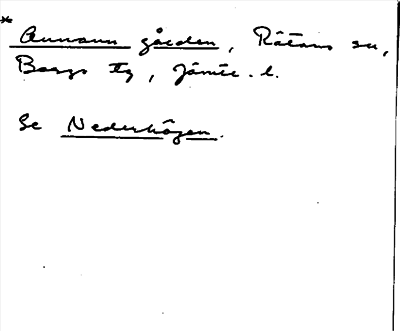 * Aunaun gården, Rätans sn,
Bergs tg, Jämtl. l.
Se Nederhögen.